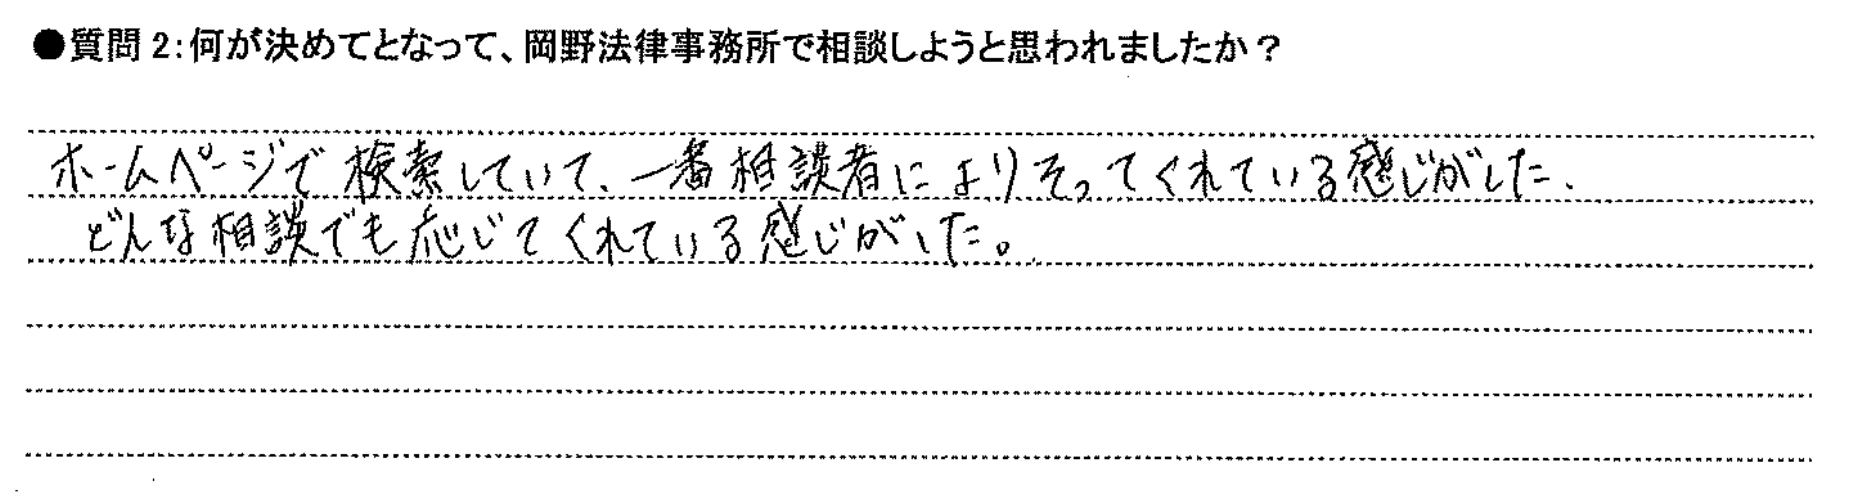 ●質問2:何が決めてとなって、岡野法律事務所で相談しようと思われましたか？
ホームページで検索していて、一番相談者によりそってくれている感じがした、
どんな相談でも応じてくれている感じがした。